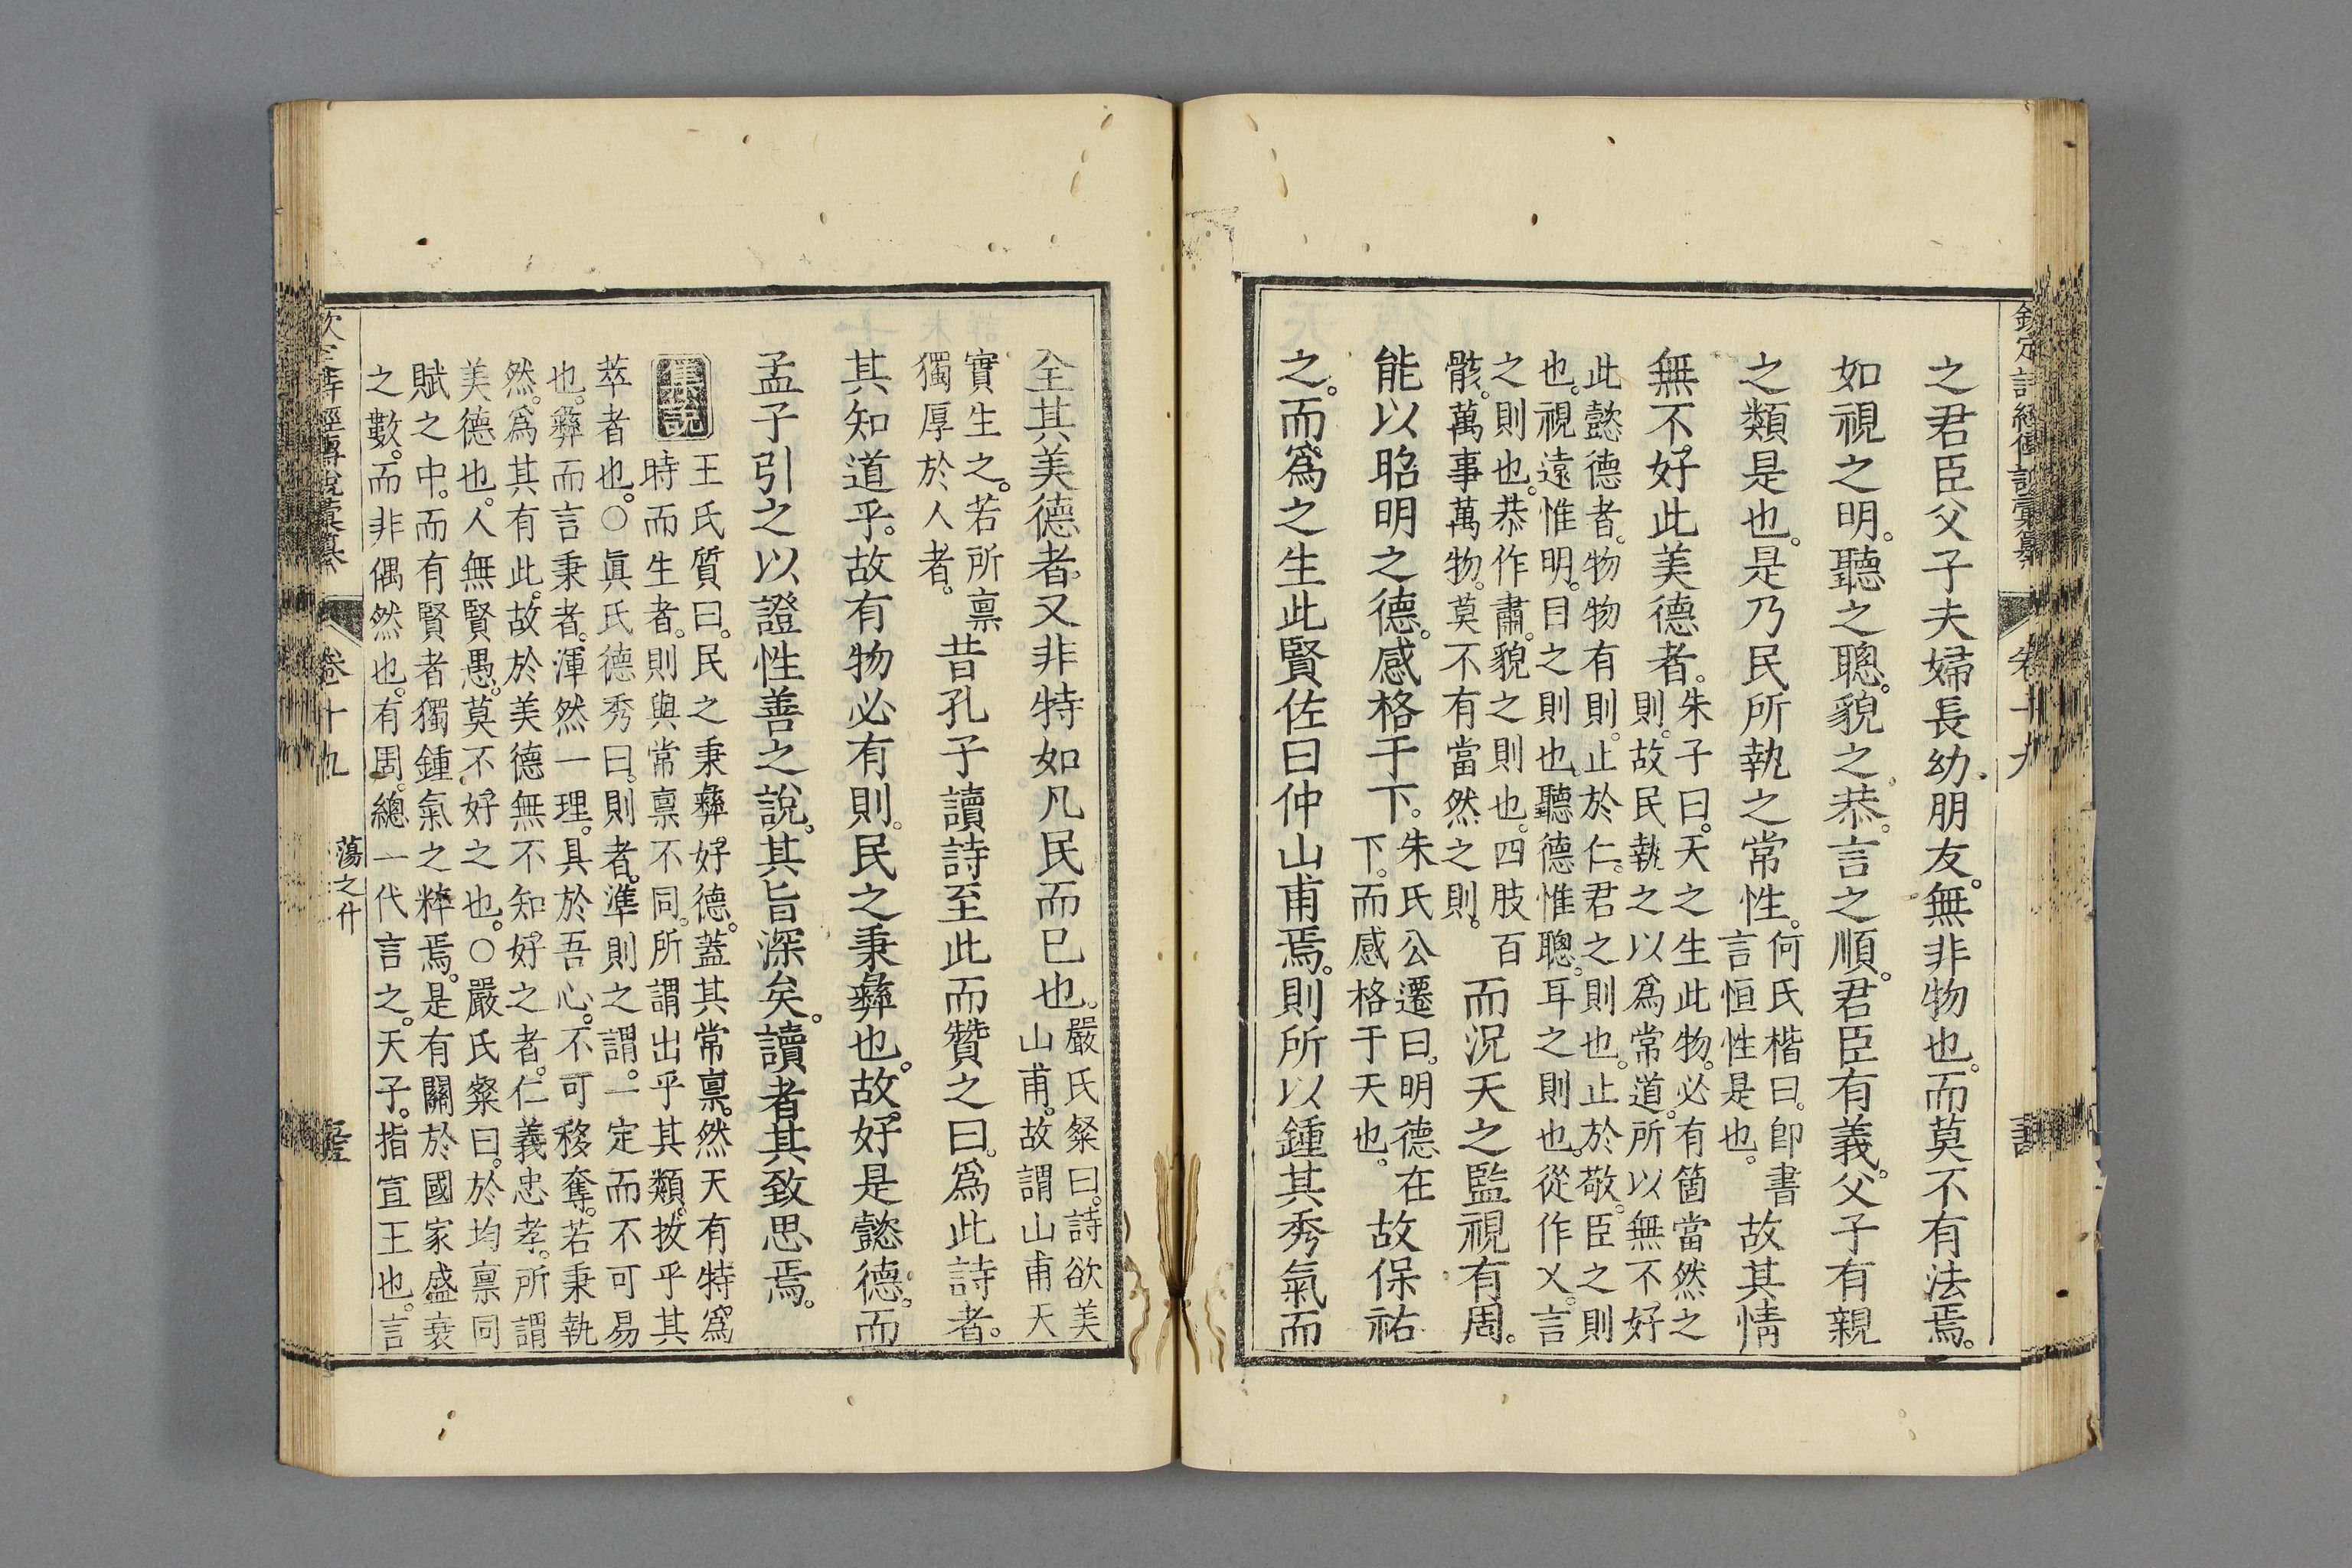 欽定詩經傳說彙纂
卷十九
之君臣父子夫婦長幼朋友。無非物也。而莫不有法焉。
如視之明。聽之聰。貌之恭。言之順。君臣有義。父子有親
之類是也。是乃民所執之常性。何氏楷曰。卽書
言恒性是也。故其情
無不好此美德者。朱子曰。天之生此物。必有箇當然之
則。故民執之以爲常道。所以無不好
此懿德者。物物有則。止於仁。君之則也。止於敬。臣之則
也。視遠惟明。目之則也。聽德惟聰。耳之則也。從作乂。言
之則也。恭作肅。貌之則也。四肢百
骸。萬事萬物。莫不有當然之則。而況天之監視有周。
能以昭明之德。感格于下。朱氏公遷曰。明德在
下。而感格于天也。故保祐
之。而爲之生此賢佐曰仲山甫焉。則所以鍾其秀氣而
全其美德者。又非特如凡民而已也。嚴氏粲曰。詩欲美
山甫。故謂山甫天
實生之。若所禀
獨厚於人者。昔孔子讀詩至此而贊之曰。爲此詩者。
其知道乎。故有物必有則。民之秉彝也。故好是懿德。而
孟子引之以證性善之說。其旨深矣。讀者其致思焉。
集說
王氏質曰。民之秉彝。好德。蓋其常禀。然天有特爲
時而生者。則與常禀不同。所謂出乎其類。拔乎其
萃者也。○眞氏德秀曰。則者。準則之謂。一定而不可易
也。彝而言秉者。渾然一理。具於吾心。不可移奪。若秉執
然。爲其有此。故於美德無不知好之者。仁義忠孝。所謂
美德也。人無賢愚。莫不好之也。○嚴氏粲曰。於均禀同
賦之中。而有賢者獨鍾氣之粹焉。是有關於國家盛衰
之數。而非偶然也。有周。總一代言之。天子。指宣王也。言
卷十九
蕩之什